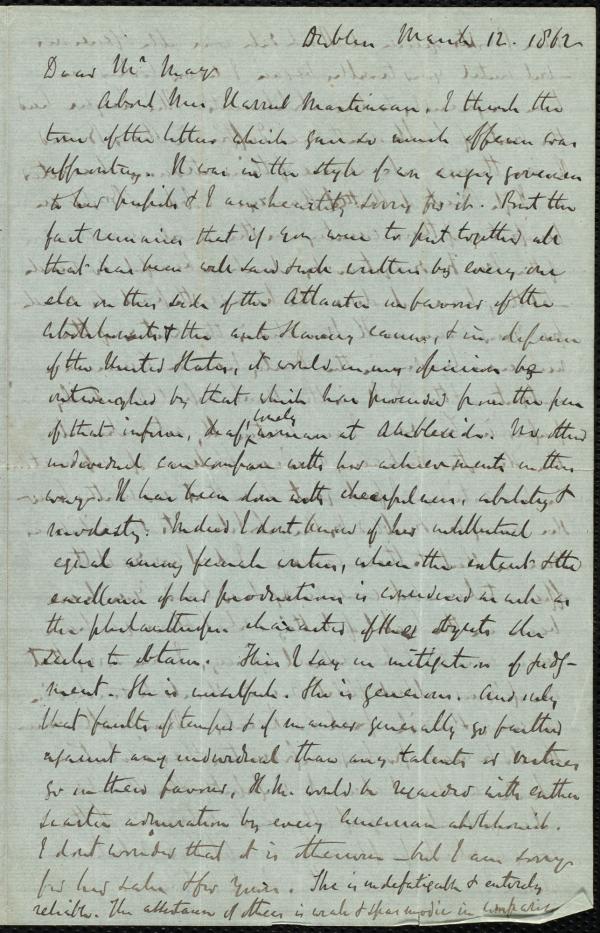 Dublin March 12. 1862
Dear Mr May
About Miss Harriet Martineau. I think the
tone of the letters which gave so much offence was
affronting. It was in the style of an angry governess
to her pupils & I am heartily sorry for it. But the
fact remains that if you were to put together all
that has been well said such written by every one
else on this side of the Atlantic in favour of the
abolitionists & the anti slavery cause, & in defence
of the United States, it would in my opinion be
outweighed by that which has proceeded from the pen
of that infirm, deaf, lonely woman at Ambleside. No other
individual can compare with her achievements in this
way. It has been done with cheerfulness, ability &
modesty. Indeed I dont know of her intellectual
equal among female writers, when the extent & the
excellence of her productions is considered as well as
the philanthropic character of the objects she
seeks to obtain. This I say in mitigation of judg-
ment. She is unselfish. She is generous. And only
that faults of temper & of manner generally go farther
against any individual than any talents or virtues
go in their favour, H.M. would be regarded with enthu
siastic admiration by every American abolitionist.
I dont wonder that it is otherwise - but I am sorry
for her sake & for yours. She is indefatigable & entirely
reliable. The assistance of others is weak & spasmodic in comparison